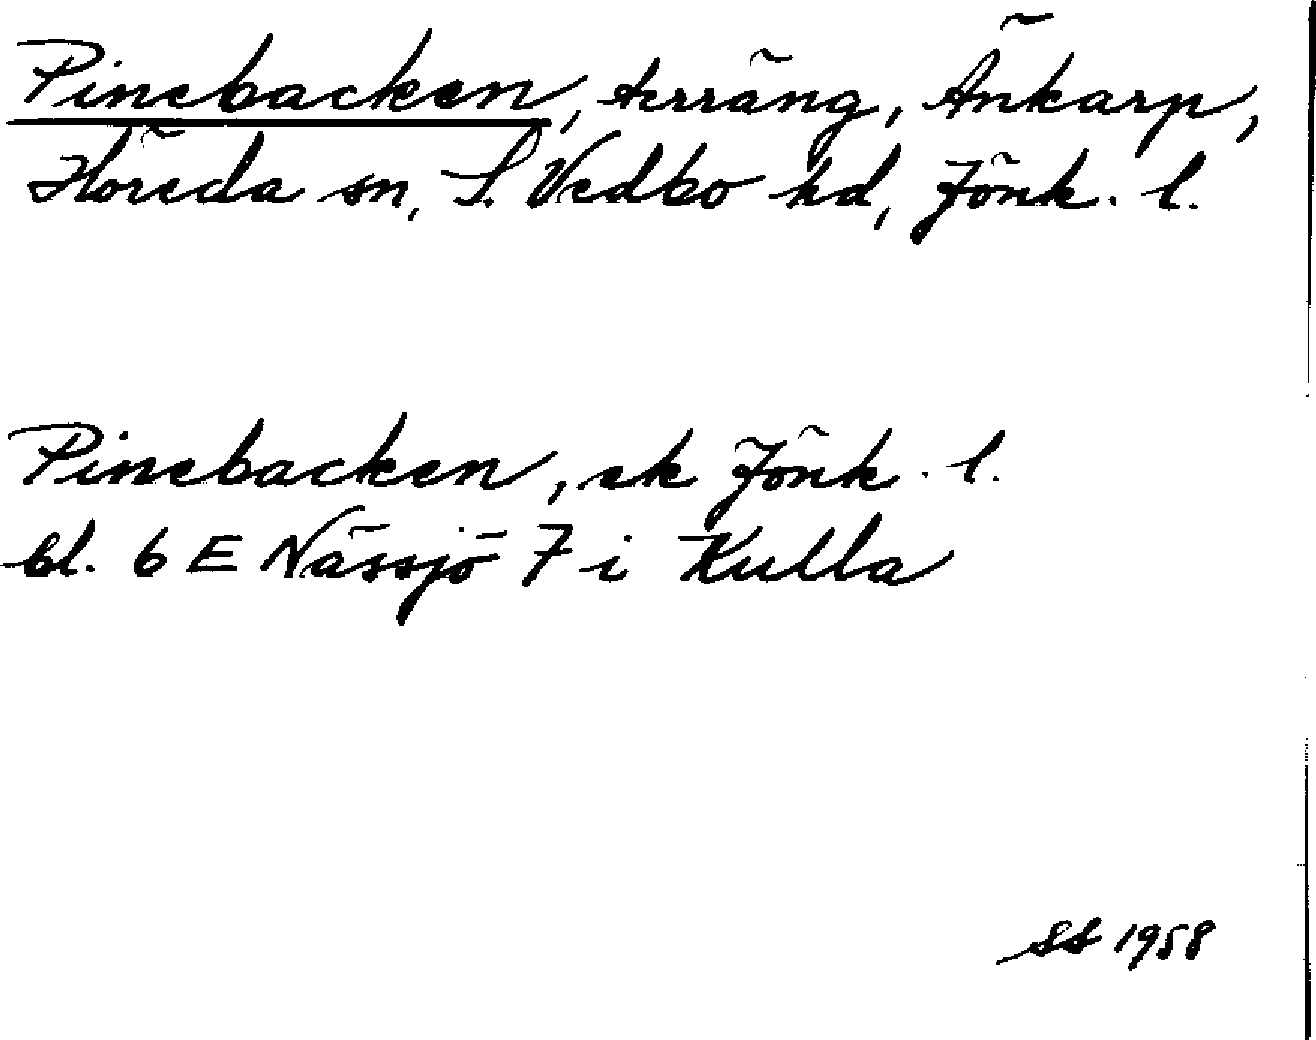 Pinebacken, terräng, Änkarp,
Höreda sn, S. Vedbo hd, Jönk. l.
Pinebacken, ek Jönk. l.
bl. 6 E Nässjö 7 i Kulla
SS 1958